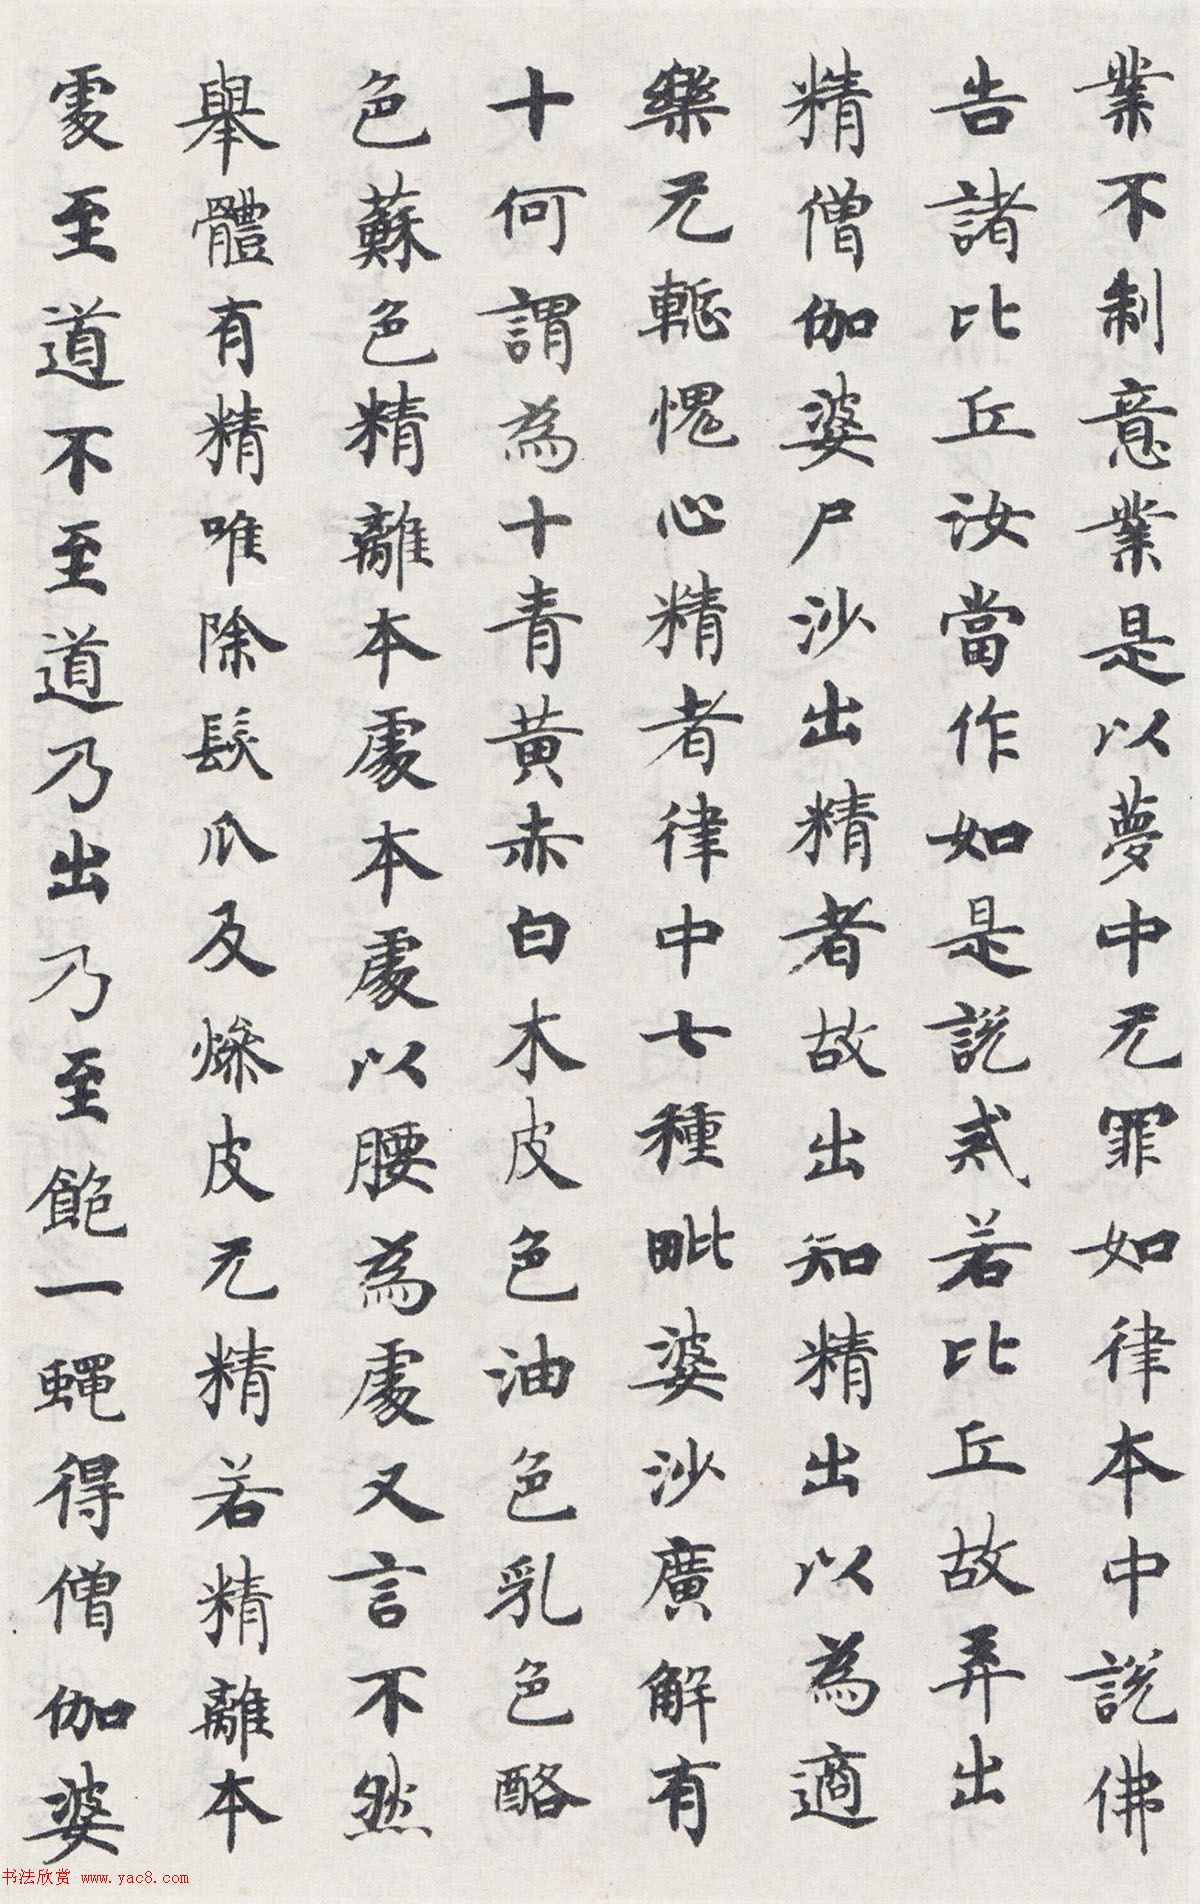 業不制意業是以夢中无罪如律本中說佛
告諸比丘汝當作如是說戒若比丘故弄出
精僧伽婆尸沙出精者故出知精出以為適
樂无慙愧心精者律中七種毗婆沙廣解有
十何謂為十青黃赤白木皮色油色乳色酪
色蘇色精離本處本處以腰為處又言不然
舉體有精唯除髮爪及燥皮无精若精離本
處至道不至道乃出乃至飽一蠅得僧伽婆
书法欣赏 www.yac8.com